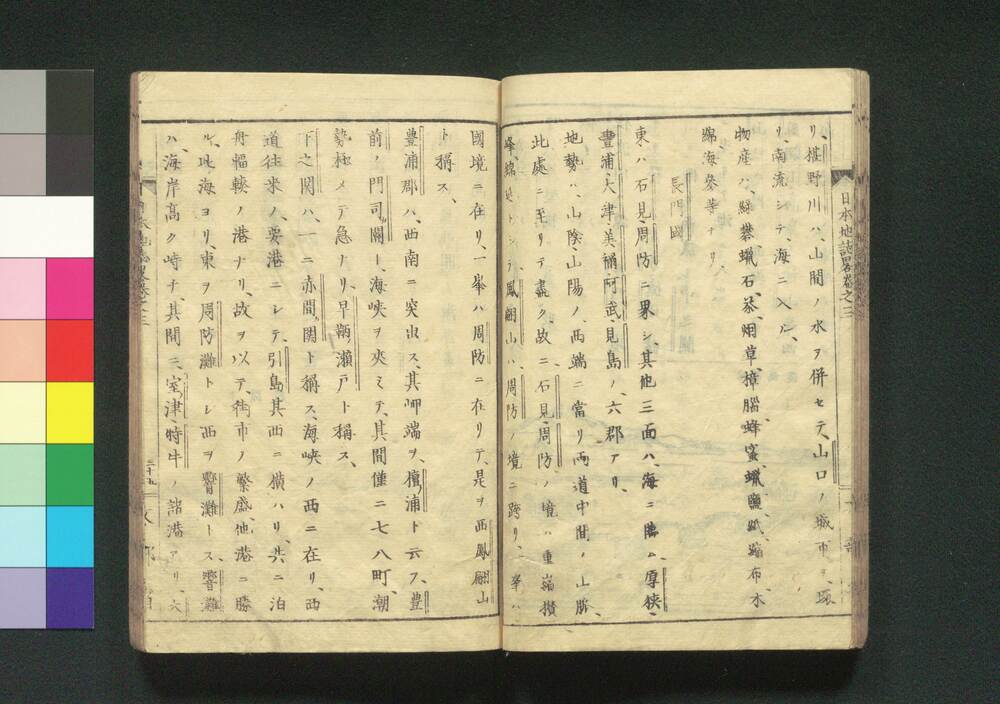 日本地誌畧卷之三
リ、椹野川ハ、山間ノ水ヲ併セテ、山口ノ城市ヲ、
リ南流シテ、海ニ入ル、
物産ハ、緑礬、蠟石、茶、烟草、樟腦、蜂蜜、蠟、鹽、紙、縮布、木
綿、海參等ナリ、
長門國
東ハ石見、周防ニ界シ、其他三面ハ、海ニ臨ム、厚狹、
豐浦、大津、美禰、阿武、見島ノ、六郡アリ、
地勢ハ、山陰、山陽ノ、西端ニ當リ、兩道中間ノ、山脈、
此處ニ至リテ盡ク、故ニ、石見、周防ノ境ハ、重巒攅
峰、綿延トシテ、鳳翩山ハ、周防ノ境ニ跨リ、峯ハ
國境ニ在リ、一峯ハ周防ニ在リテ、是ヲ西鳳翩山
ト稱ス、
豐浦郡ハ、西南ニ突出ス、其岬端ヲ、檀浦ト云フ、豐
前ノ門司關ト、海峽ヲ夾ミテ、其間僅ニ七八町、潮
勢極メテ急ナリ、早鞆瀬戸ト稱ス、
下之關ハ、一ニ赤間關ト稱ス、海峽ノ西ニ在リ、西
道往來ノ、要港ニシテ、引島其西ニ横ハリ、共ニ泊
舟輻輳ノ港ナリ、故ヲ以テ、街市ノ繁盛、他港ニ勝
ル、此海ヨリ、東ヲ周防灘トシ、西ヲ響灘トス、響灘
ハ、海岸高ク峙チ、其間ニ、室津、特牛ノ諸港アリ、大
二十九